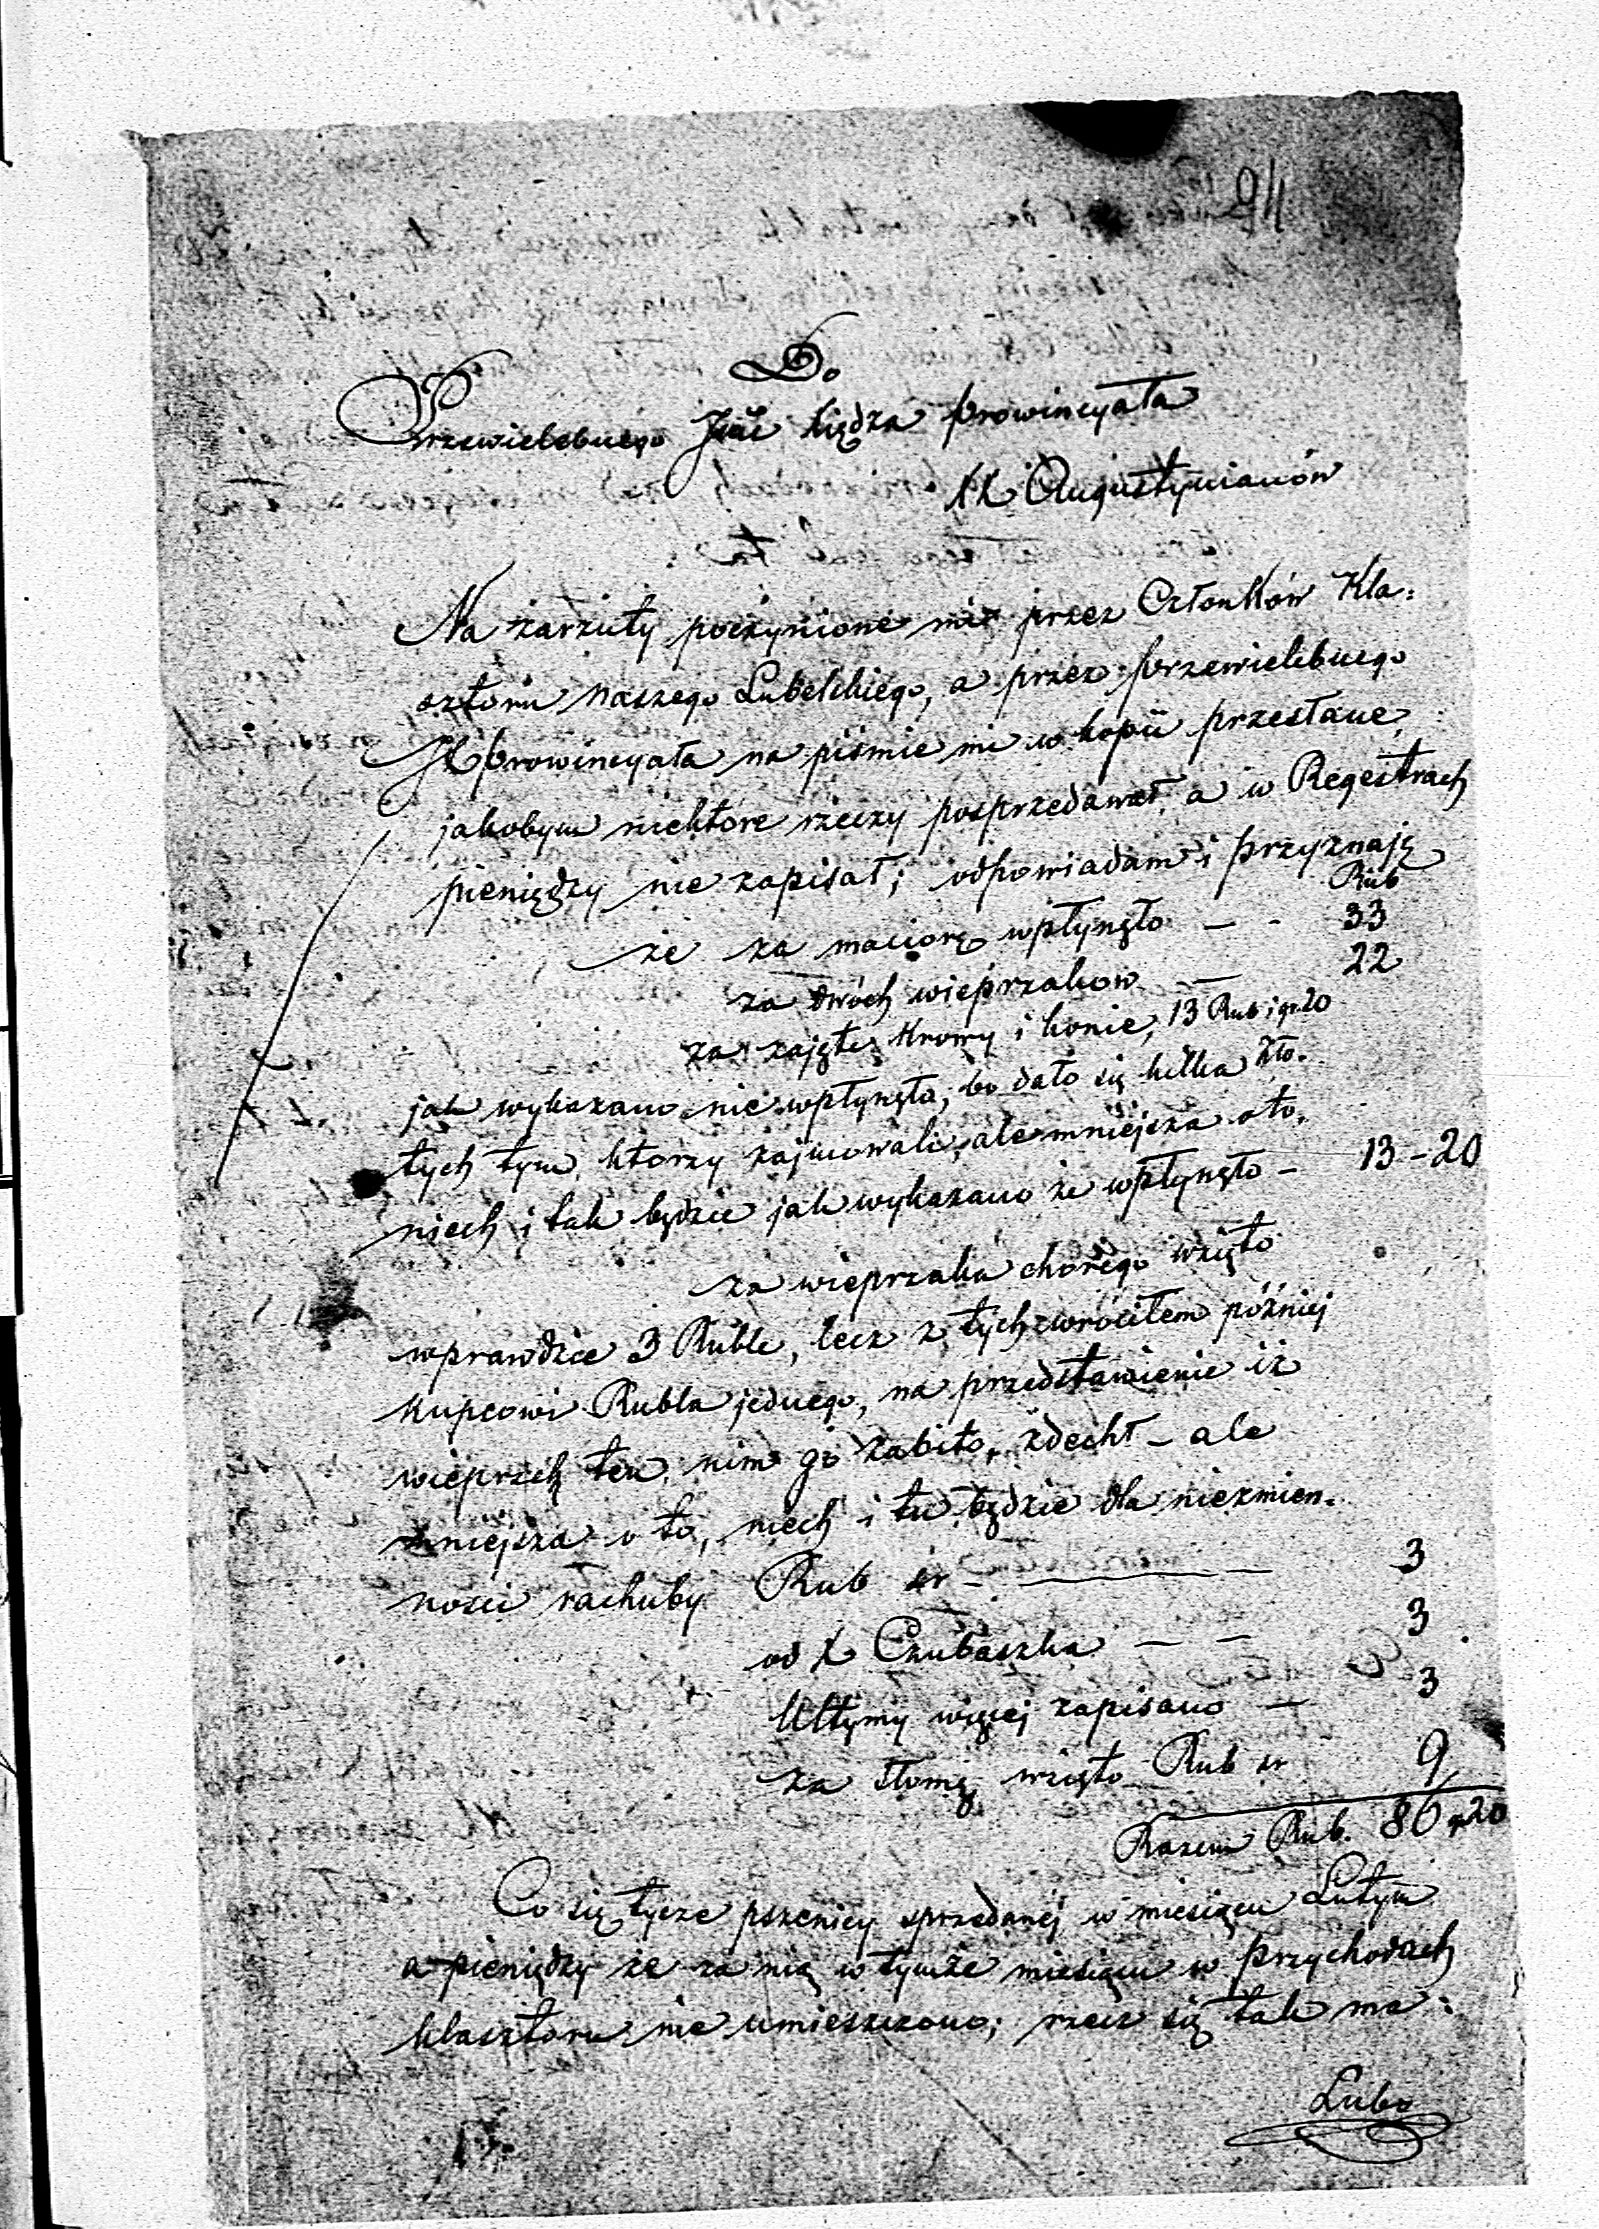 Do
Przewielebnego Jmć Księdza Prowincyała
XX Augustyniánów
Na zarzuty poczynione mi przez Członków Kla:
sztoru naszego Lubelskiego, a przez przewielebnego
JX Prowincyała na piśmie mi w kopii przesłane,
jakobym niektóre rzeczy posprzedawał, a w Regestrach
pieniędzy nie zapisał; odpowiadam i przyznaję
Rub
że za maciorę wpłynęło — - 33
za dwóch wieprzaków — 22
za zajęte krowy i konie, 13 Rub i gr. 20
jak wykazano nie wpłynęła, bo dało się kilka Zło.
tych tym, którzy zajmowali, ale mniejsza oto,
niech i tak będzie jak wykazano że wpłynęło — 13 - 20
za wieprzaka chorego wzięto
wprawdzie 3 Ruble, lecz z tych zwróciłem później
kupcowi Rubla jednego, na przedstawienie iż
wieprzek ten, nim go zabito, zdechł — ale
mniejsza o to, niech i tu będzie dla niezmien.
ności rachuby Rub sr — — 3
od X Czubaszka — — 3
Ultymy więcej zapisano — 3
za słomę wzięto Rub sr 9
Razem Rub. 86 gr 20
Co się tycze pszenicy sprzedanej w miesiącu Lutym
a pieniędzy że za nią w tymże miesiącu w przychodach
klasztoru nie umieszczono; rzecz się tak ma:
Lubo